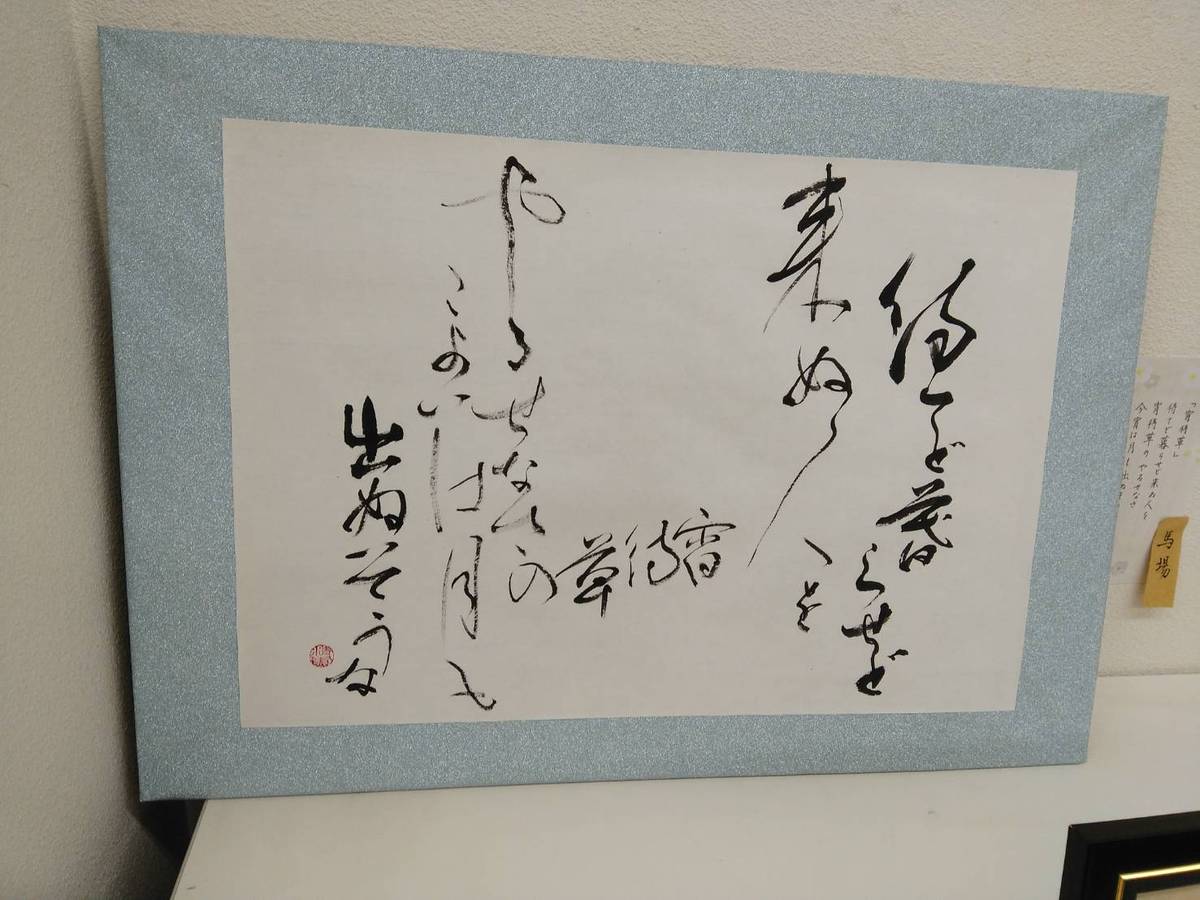 待てど暮
らせど
来ぬ
人を
宵待草の
やるせなさ
こよいは月も
出ぬそうな
「宵待草」
待てど暮らせど来ぬ人を
宵待草の やるせなさ
今宵は月も出ぬ
馬場